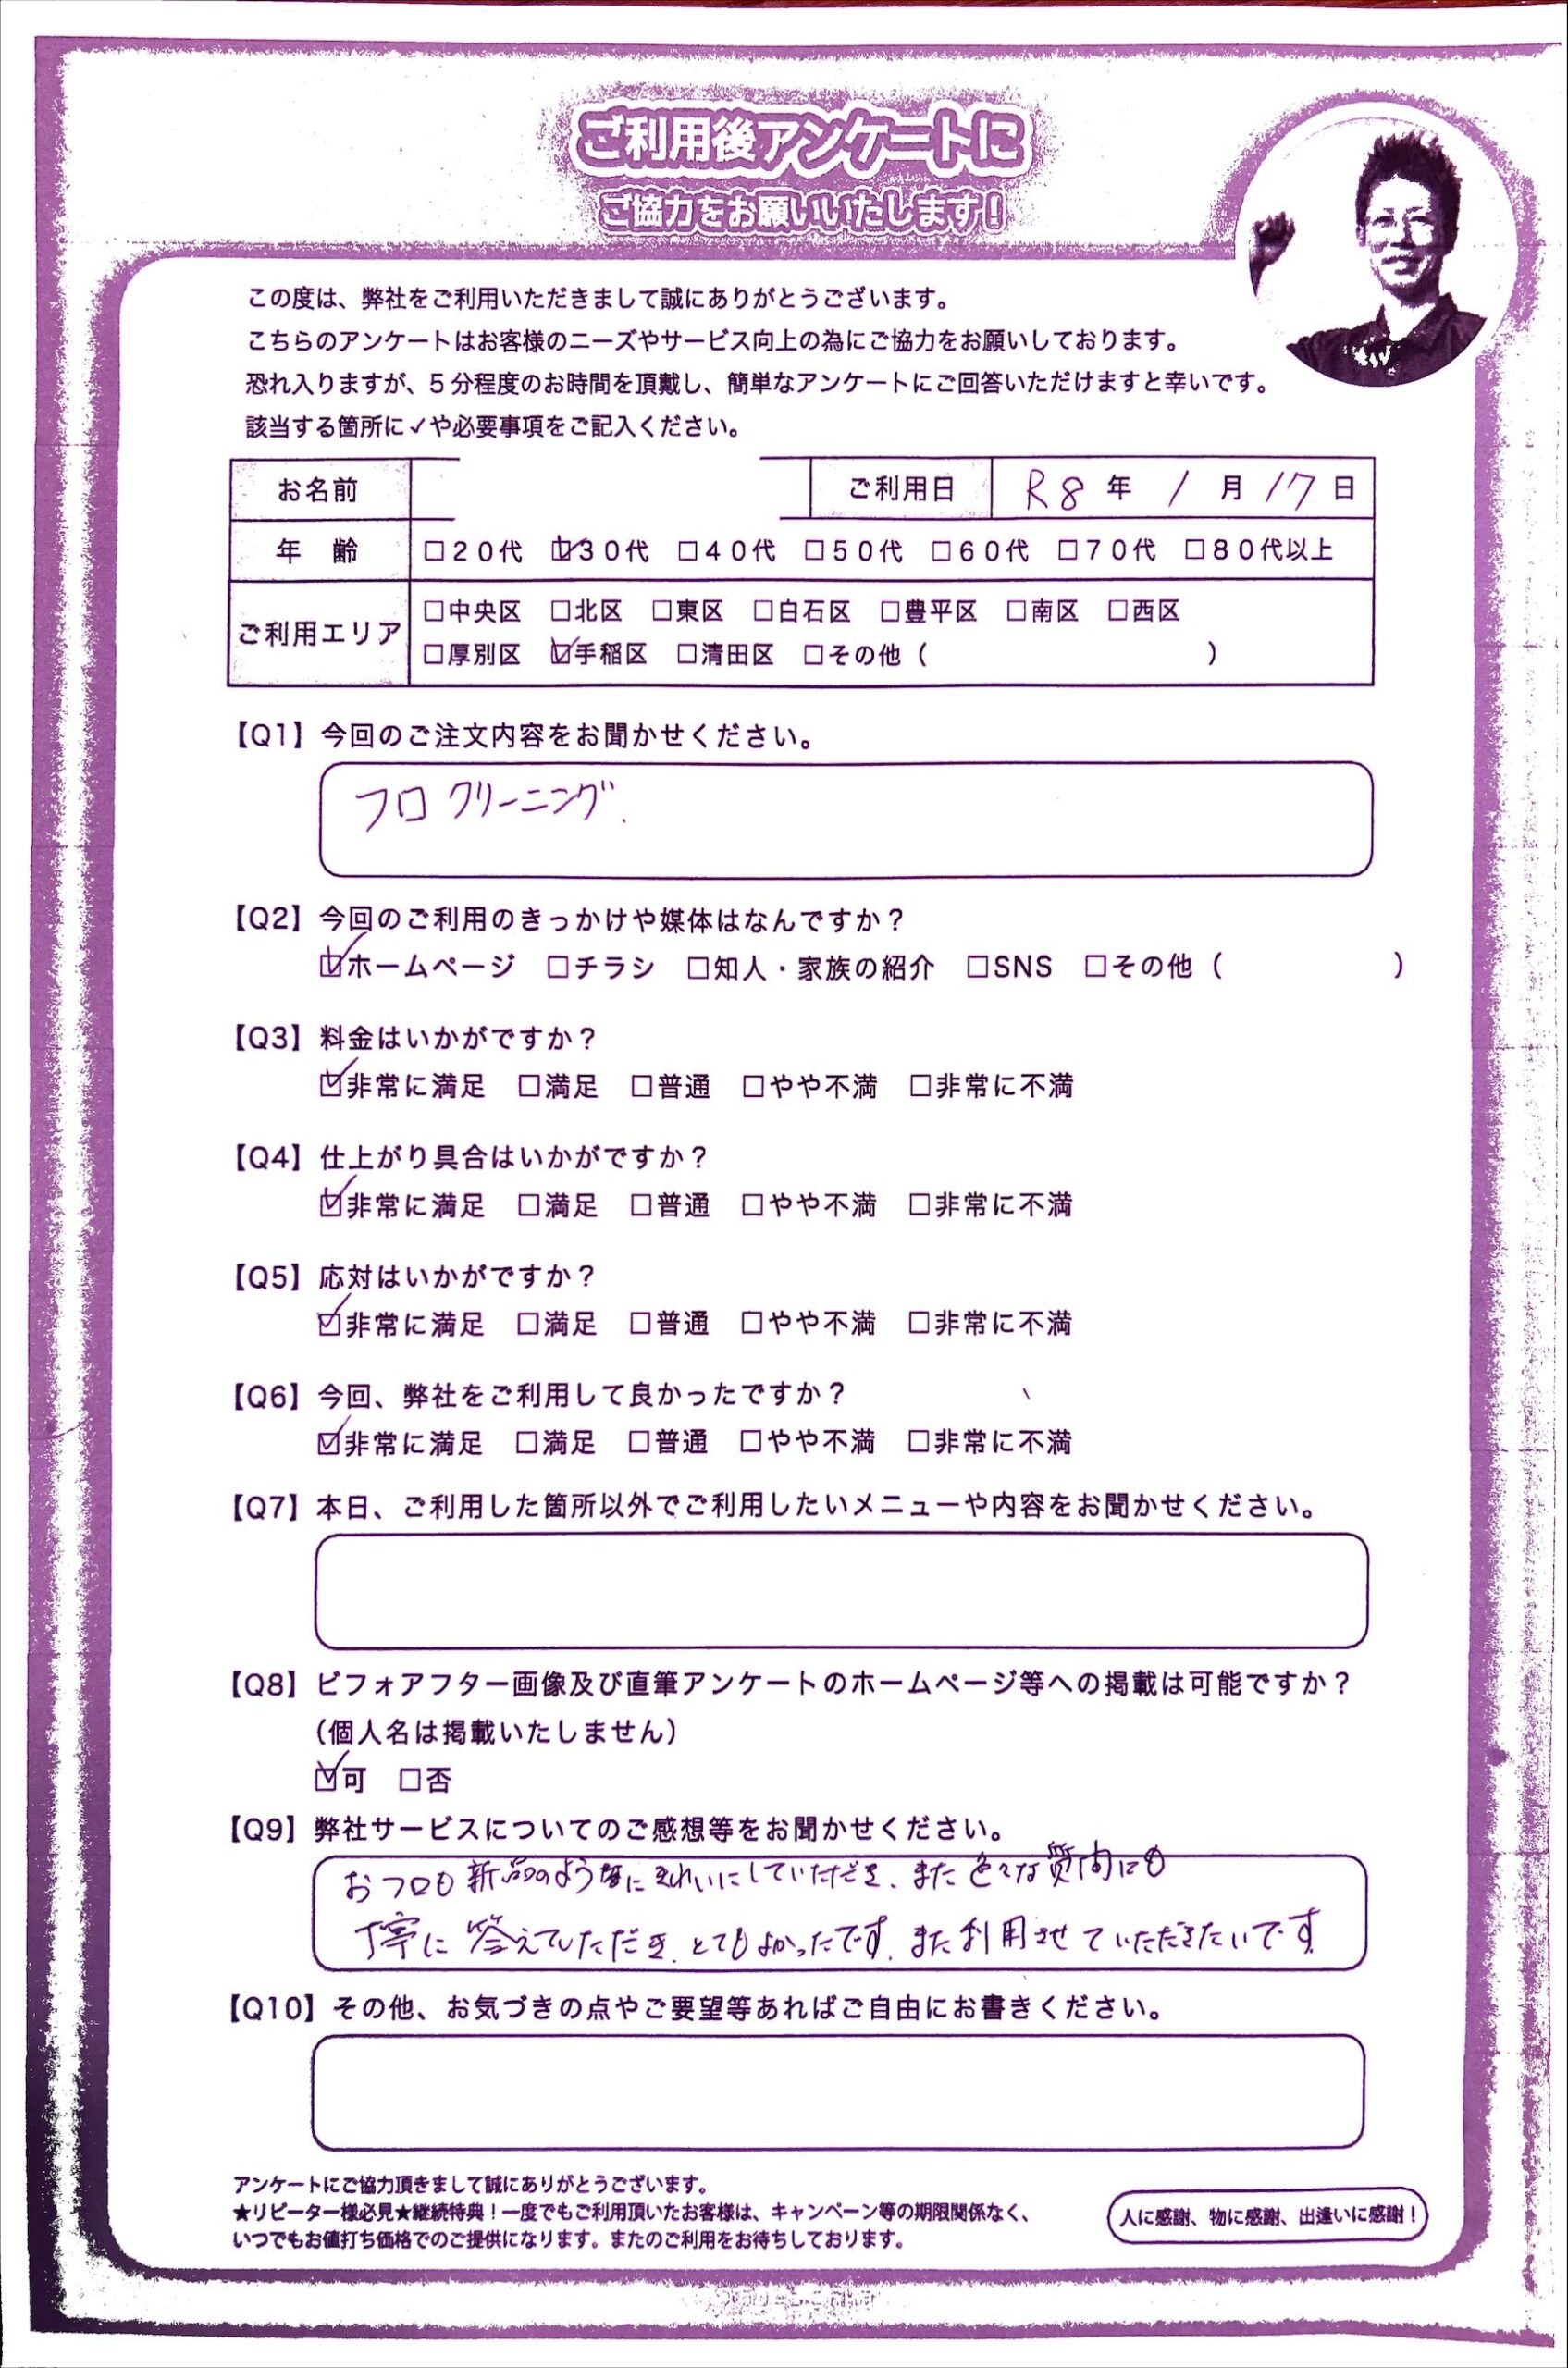 ご利用後アンケートに
ご協力をお願いいたします!
この度は、弊社をご利用いただきまして誠にありがとうございます。
こちらのアンケートはお客様のニーズやサービス向上の為にご協力をお願いしております。
恐れ入りますが、5分程度のお時間を頂戴し、簡単なアンケートにご回答いただけますと幸いです。
該当する箇所に✓や必要事項をご記入ください。
お名前 ご利用日 R8年 1月17日
年 齢 □20代 ☑30代 □40代 □50代 □60代 □70代 □80代以上
ご利用エリア □中央区 □北区 □東区 □白石区 □豊平区 □南区 □西区
□厚別区 ☑手稲区 □清田区 □その他( )
【Q1】今回のご注文内容をお聞かせください。
フロクリーニング.
【Q2】今回のご利用のきっかけや媒体はなんですか?
☑ホームページ □チラシ □知人・家族の紹介 □SNS □その他( )
【Q3】料金はいかがですか?
☑非常に満足 □満足 □普通 □やや不満 □非常に不満
【Q4】仕上がり具合はいかがですか?
☑非常に満足 □満足 □普通 □やや不満 □非常に不満
【Q5】応対はいかがですか?
☑非常に満足 □満足 □普通 □やや不満 □非常に不満
【Q6】今回、弊社をご利用して良かったですか?
☑非常に満足 □満足 □普通 □やや不満 □非常に不満
【Q7】本日、ご利用した箇所以外でご利用したいメニューや内容をお聞かせください。
【Q8】ビフォアフター画像及び直筆アンケートのホームページ等への掲載は可能ですか?
(個人名は掲載いたしません)
☑可 □否
【Q9】弊社サービスについてのご感想等をお聞かせください。
おフロも新品のようにきれいにしていただき、また色々な質問にも
丁寧に答えていただき、とてもよかったです。また利用させていただきたいです。
【Q10】その他、お気づきの点やご要望等あればご自由にお書きください。
アンケートにご協力頂きまして誠にありがとうございます。
★リピーター様必見★継続特典!一度でもご利用頂いたお客様は、キャンペーン等の期限関係なく、
いつでもお値打ち価格でのご提供になります。またのご利用をお待ちしております。
人に感謝、物に感謝、出逢いに感謝!